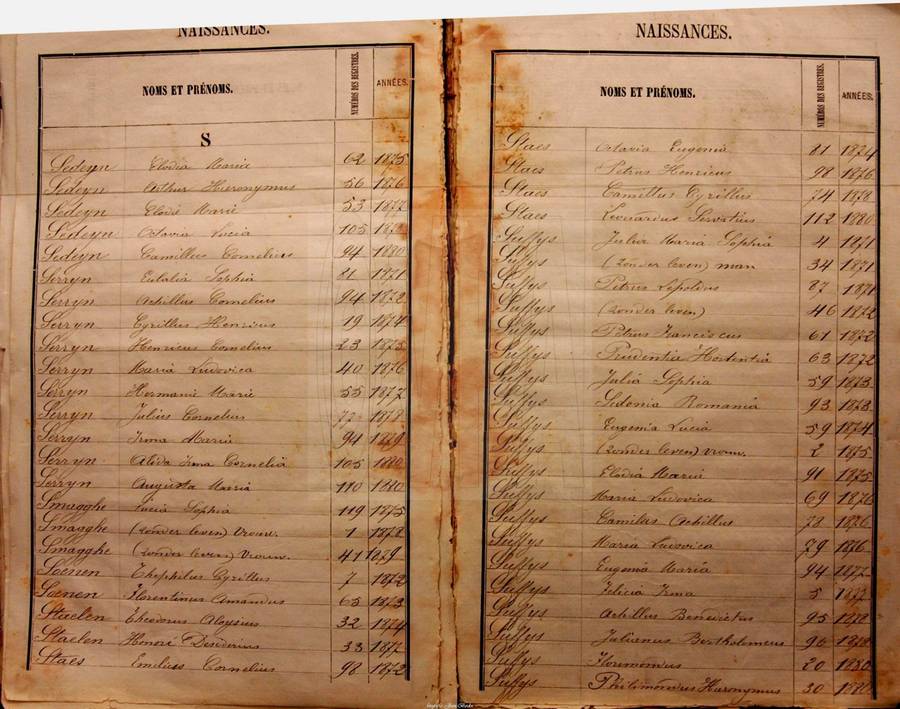 NAISSANCES.
NOMS ET PRÉNOMS. NUMÉROS DES REGISTRES. ANNÉES.
S
Sedeyn Elodia Maria 62 1875
Sedeyn Arthur Hieronymus 56 1876
Sedeyn Elodi Marie 53 1877
Sedeyn Octavia Lucia 105 1878
Sedeyn Camillus Cornelius 94 1880
Serryn Eulalia Sophia 81 1871
Serryn Achillus Cornelius 94 1872
Serryn Cyrillus Henricus 19 1874
Serryn Henricus Cornelius 23 1875
Serryn Maria Ludovica 40 1876
Serryn Hermanie Marie 55 1877
Serryn Julius Cornelius 1878
Serryn Irma Maria 94 1879
Serryn Alida Irma Cornelia 105 1880
Serryn Augusta Maria 110 1880
Smagghe Lucia Sophia 119 1875
Smagghe (zonder leven) vrouw. 1 1878
Smagghe (zonder leven) vrouw. 41 1879
Soenen Theophilus Cyrillus 7 1872
Soenen Florentinus Amandus 65 1873
Staelen Theodorus Aloysius 32 1874
Staelen Honoré Desiderius 33 1877
Staes Emilius Cornelius 98 1872
NAISSANCES.
NOMS ET PRÉNOMS. NUMÉROS DES REGISTRES. ANNÉES.
Staes Octavia Eugenia 81 1874
Staes Petrus Henricus 98 1876
Staes Camillus Cyrillus 74 1878
Staes Leonardus Servatius 112 1880
Suffys Julia Maria Sophia 4 1871
Suffys (zonder leven) man 34 1871
Suffys Petrus Leopoldus 87 1871
Suffys (zonder leven) 46 1872
Suffys Petrus Franciscus 61 1872
Suffys Prudentia Hortentia 63 1872
Suffys Julia Sophia 59 1873
Suffys Sidonia Romania 93 1873
Suffys Eugenia Lucia 59 1874
Suffys (zonder leven) vrouw. 2 1875
Suffys Elodia Maria 91 1875
Suffys Maria Ludovica 69 1876
Suffys Camilus Achillus 78 1876
Suffys Maria Ludovica 79 1876
Suffys Eugenia Maria 94 1877
Suffys Felicia Irma 5
Suffys Achillus Benedictus 95 1878
Suffys Julianus Bertholomeus 96
Suffys Florimondus 20 1880
Suffys Philimondus Hieronymus 30 1880